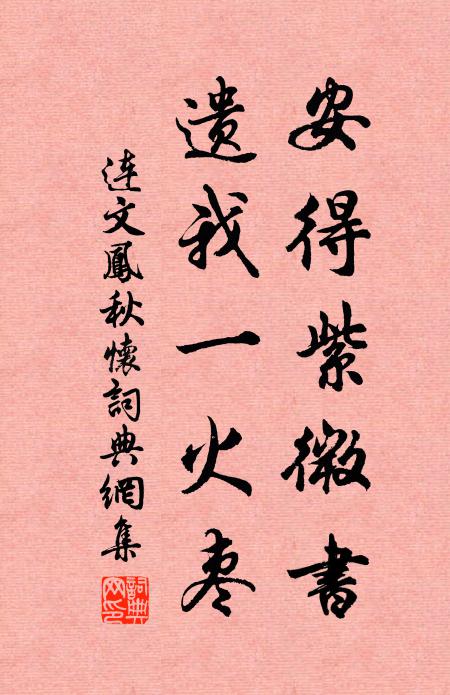 安得紫微書
遺我一火棗
連文鳳秋懷詞典網集
詞典網印